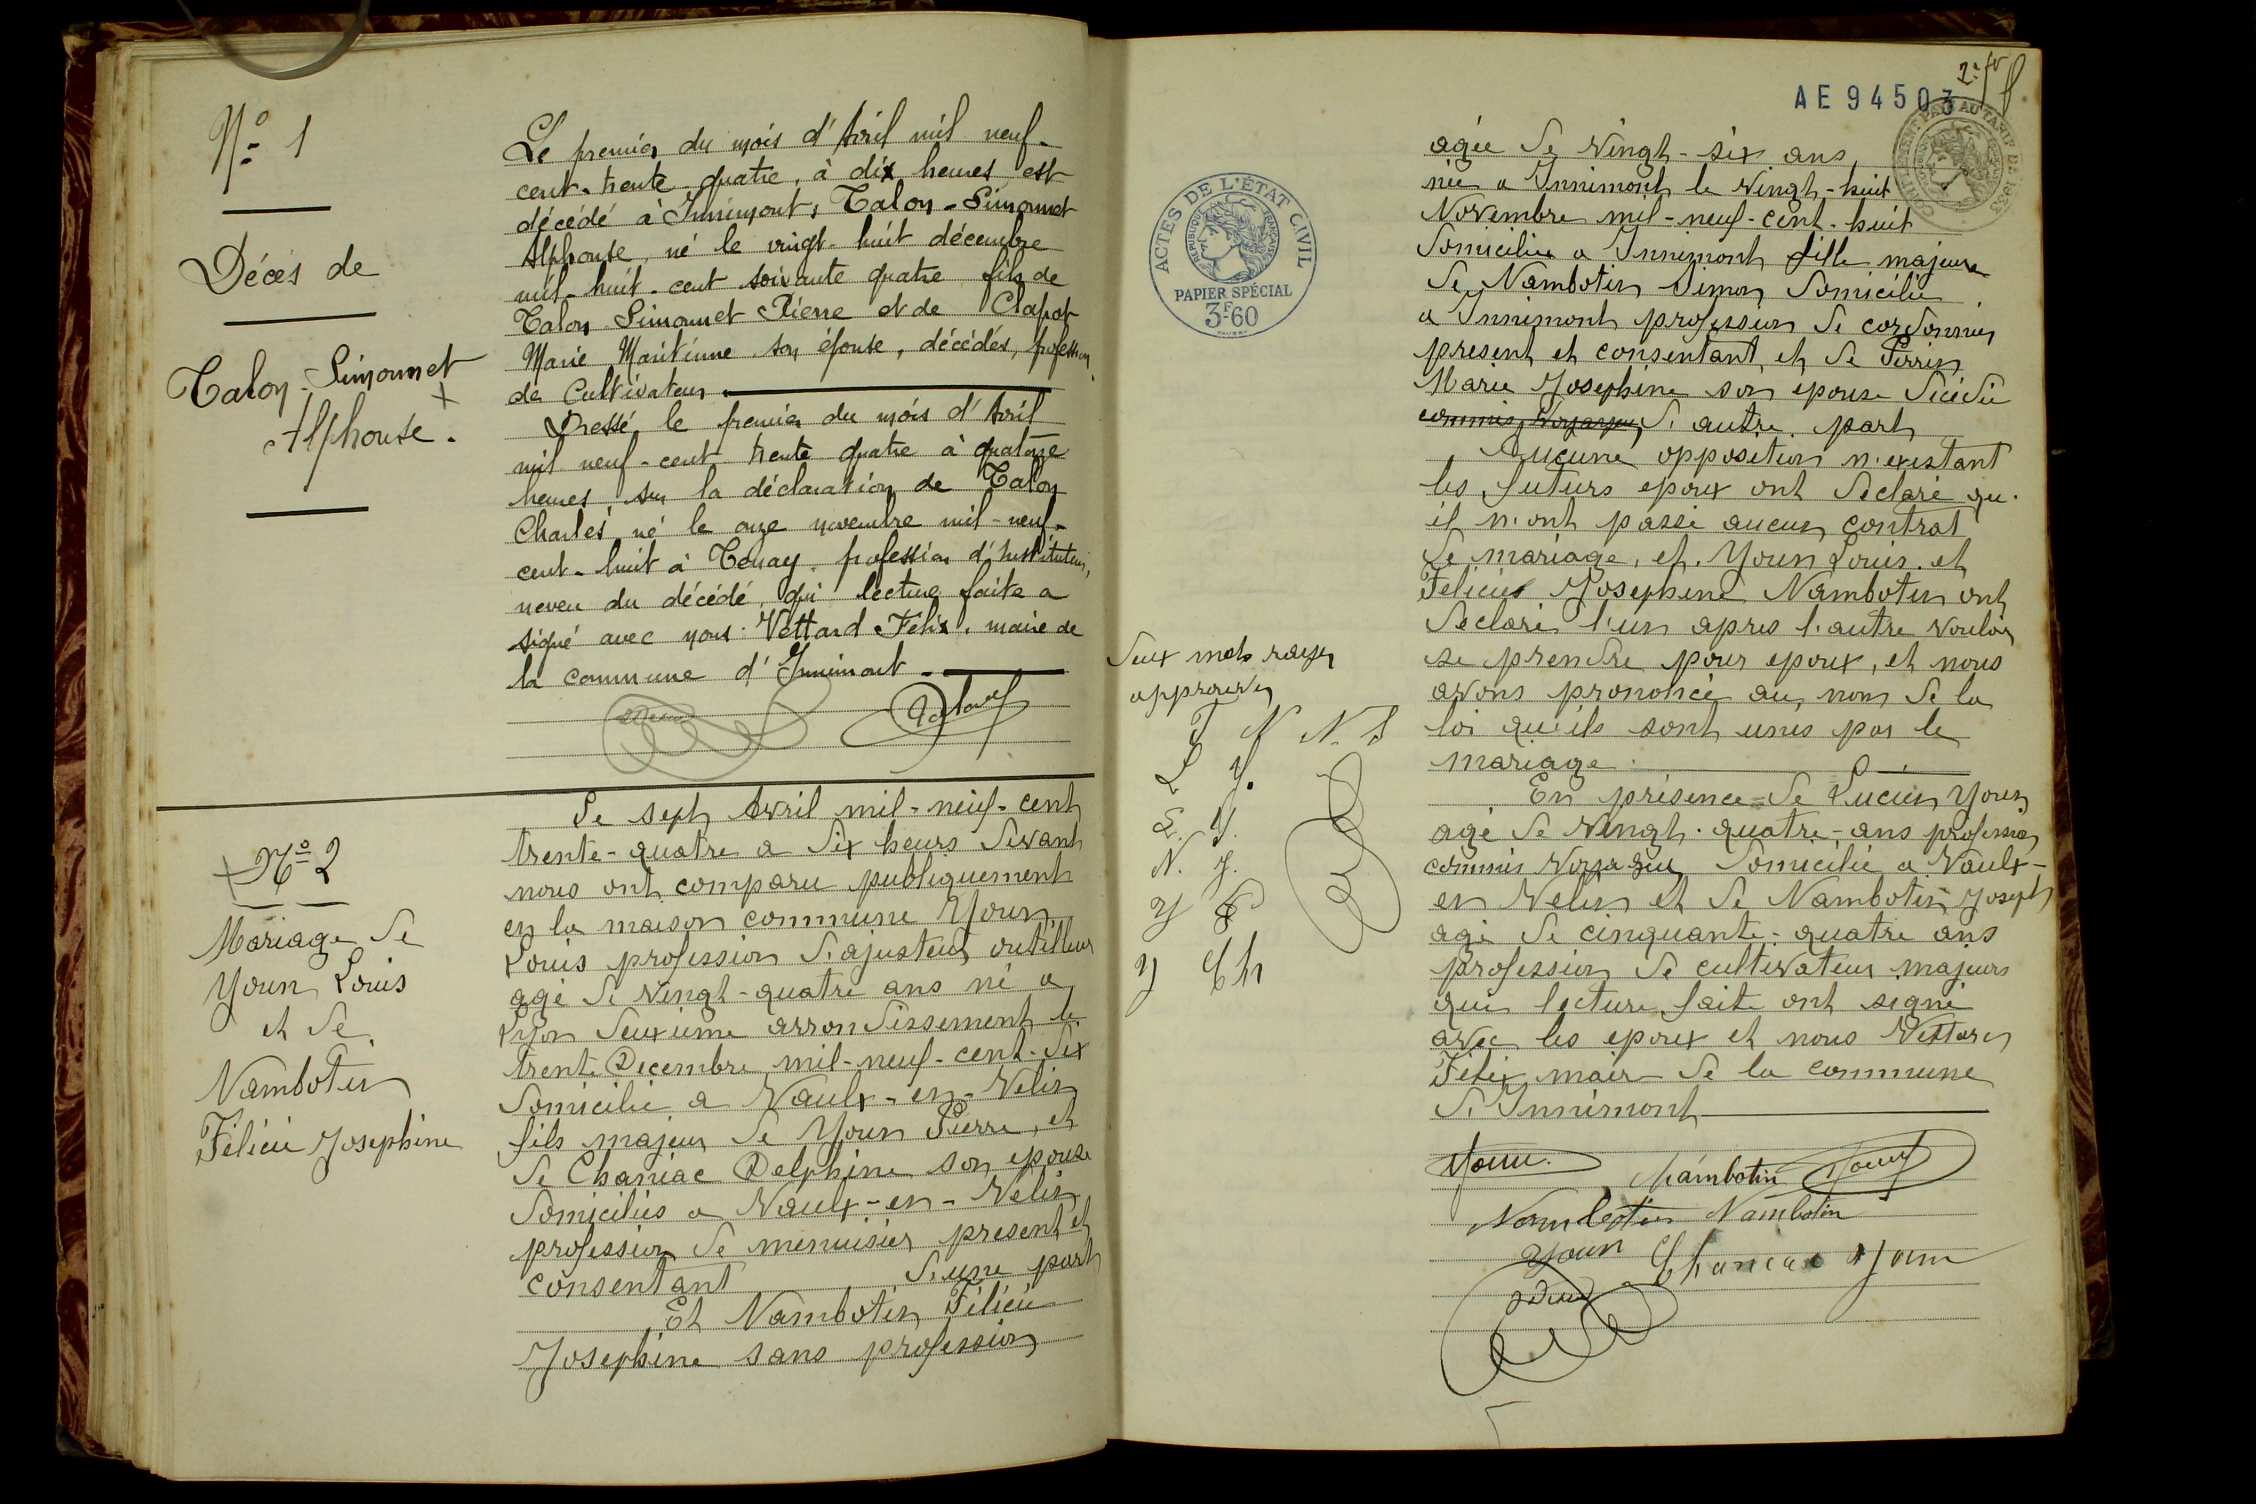 N° 1
Décès de
Talon-Simonnet
Alphonse.
Le premier du mois d'Avril mil neuf-
cent-trente quatre, à dix heures est
décédé à Innimont, Talon-Simonnet
Alphonse, né le vingt-huit décembre
mil-huit-cent soixante quatre fils de
Talon Simonnet Pierre et de Clapot
Marie Maritinne son épouse, décédés, profession
de Cultivateur
Dressé le premier du mois d'Avril
mil neuf-cent trente quatre à quatorze
heures, sur la déclaration de Talon
Charles né le onze novembre mil-neuf-
cent-huit à Tenay. profession d'Instituteur,
neveu du décédé, qui lecture faite a
signé avec nous Vettard Félix, maire de
la commune d'Innimont
N° 2
Mariage de
Youn Louis
et de
Nambotin
Félicie Josephine
Le sept Avril mil-neuf-cent
trente-quatre a dix heurs devant
nous ont comparu publiquement
en la maison commune Youn
Louis profession d'ajusteur outilleur
agé de vingt-quatre ans né a
Lyon deuxieme arrondissement le
trente Decembre mil-neuf-cent-dix
domicilié a Vaulx-en-Velin
fils majeur de Youn Pierre, et
de Chaniac Delphine son epouse
domiciliés a Vaulx-en-Velin
profession de menuisier present et
consentant d'une part
Et Nambotin Félicie
Josephine sans profession
AE 94503
ACTES DE L'ÉTAT CIVIL
RÉPUBLIQUE FRANÇAISE
PAPIER SPÉCIAL
3F60
agée de vingt-six ans,
née a Innimont le vingt-huit
Novembre mil-neuf-cent-huit
domiciliée a Innimont fille majeure
de Nambotin Simon domicilié
a Innimont profession de cordonnier
present et consentant et de Perrin
Marie Josephine son epouse décédée
commis Voyageur, d'autre part
Aucune opposition n'existant
les futurs epoux ont declaré qu'
il n'ont passé aucun contrat
de mariage, et. Youn Louis. et
Felicie Josephine Nambotin ont
declaré l'un apres l'autre vouloir
se prendre pour epoux, et nous
avons prononcé au nom de la
loi qu'ils sont unis par le
mariage.
En présence de Lucien Youn
agé de vingt-quatre-ans profession
commis Voyageur domicilié a Vaulx-
en Velin et de Nambotin Joseph
agé de cinquante-quatre ans
profession de cultivateur majeurs
qui lecture fait ont signé
avec les epoux et nous Vettard
Félix mair de la commune
d'Innimont
deux mots rayés
approuvés
J N N. S
L Y.
L. Y.
N. J.
Y P
Y Ch
Youn.
Nambotin Youn
Nambotin Nambotin
Youn Chaniac Youn